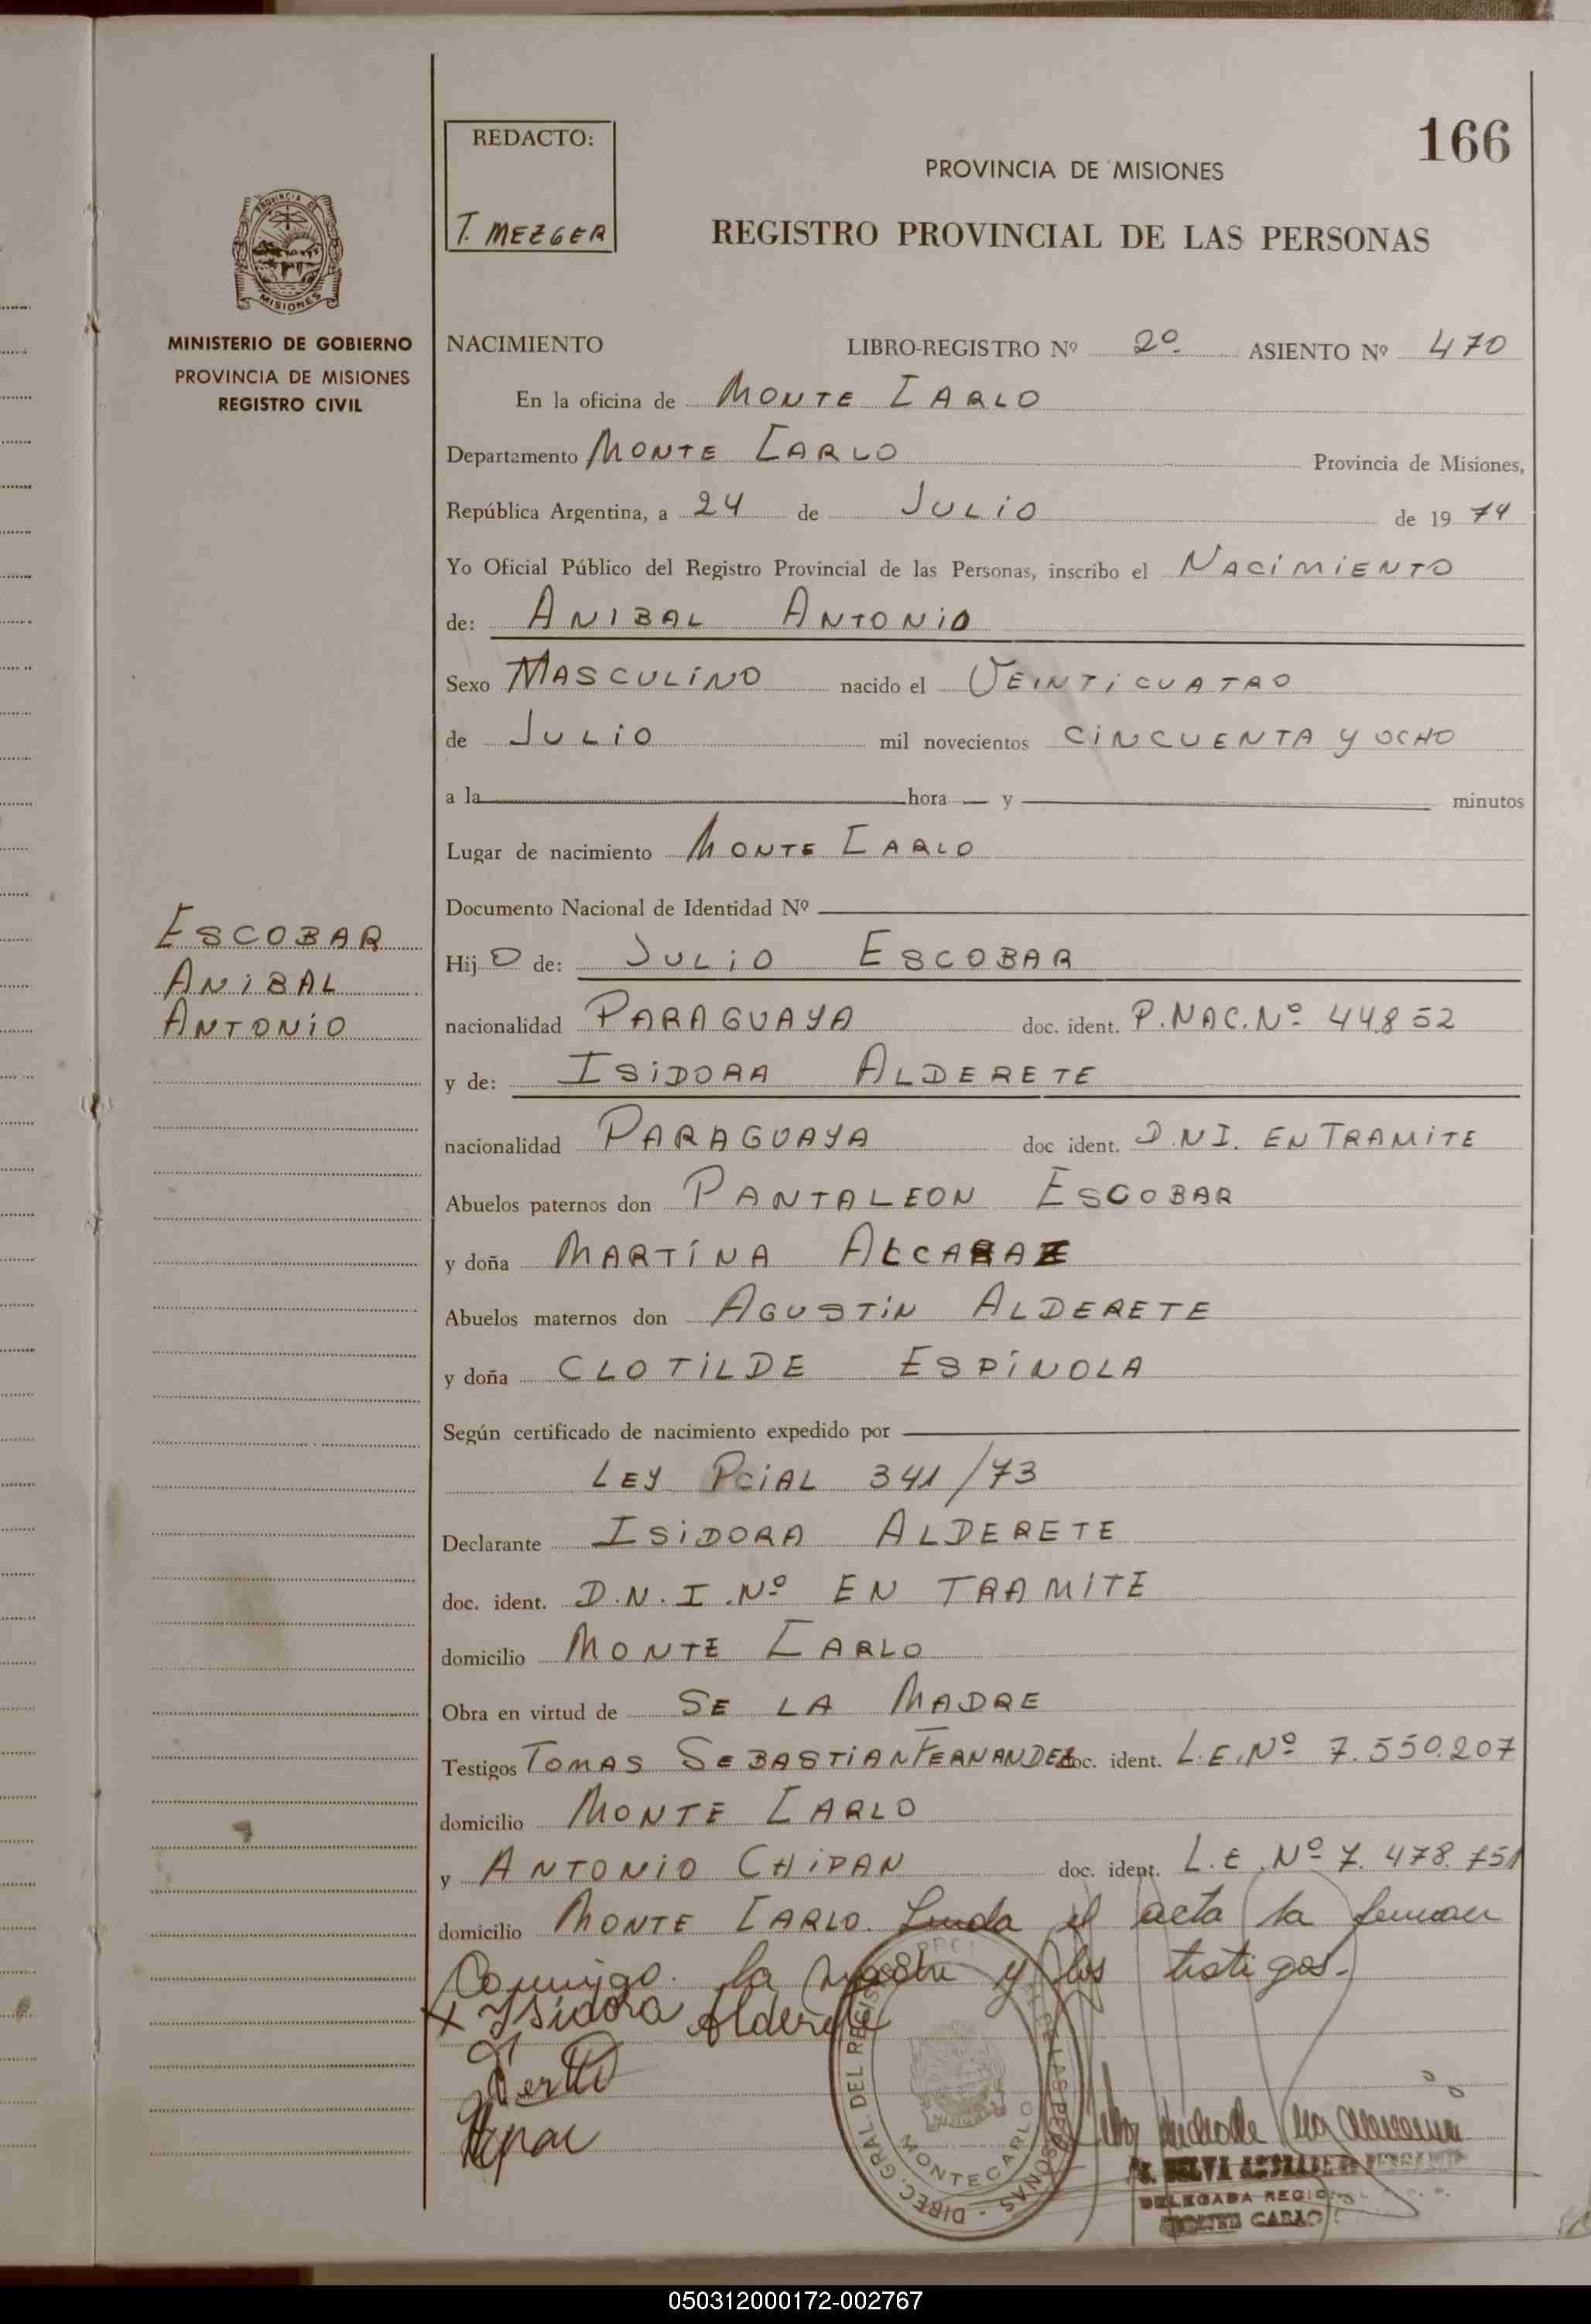 166
REDACTO:
T. MEZGER
PROVINCIA DE MISIONES
REGISTRO PROVINCIAL DE LAS PERSONAS
PROVINCIA DE
MISIONES
MINISTERIO DE GOBIERNO
PROVINCIA DE MISIONES
REGISTRO CIVIL
NACIMIENTO LIBRO-REGISTRO Nº 2º ASIENTO Nº 470
En la oficina de MONTE CARLO
Departamento MONTE CARLO Provincia de Misiones,
República Argentina, a 24 de JULIO de 19 74
Yo Oficial Público del Registro Provincial de las Personas, inscribo el NACIMIENTO
de: ANIBAL ANTONIO
Sexo MASCULINO nacido el VEINTICUATRO
de JULIO mil novecientos CINCUENTA Y OCHO
a la hora y minutos
Lugar de nacimiento MONTE CARLO
Documento Nacional de Identidad Nº
ESCOBAR
ANIBAL
ANTONIO
Hij O de: JULIO ESCOBAR
nacionalidad PARAGUAYA doc. ident. P.NAC.Nº 44852
y de: ISIDORA ALDERETE
nacionalidad PARAGUAYA doc ident. D.NI. EN TRAMITE
Abuelos paternos don PANTALEON ESCOBAR
y doña MARTINA ALCARAZ
Abuelos maternos don AGUSTIN ALDERETE
y doña CLOTILDE ESPINOLA
Según certificado de nacimiento expedido por
LEY PCIAL 341/73
Declarante ISIDORA ALDERETE
doc. ident. D.N.I.Nº EN TRAMITE
domicilio MONTE CARLO
Obra en virtud de SE LA MADRE
Testigos TOMAS SEBASTIAN FERNANDEZ doc. ident. L.E.Nº 7.550.207
domicilio MONTE CARLO
y ANTONIO CHIPAN doc. ident. L.E.Nº 7.478.751
domicilio MONTE CARLO. el acta la firman
Conmigo. la madre y los testigos.
x Isidora Alderete
DIREC. GRAL. DEL REGIS LAS PERSONAS
MONTECARLO
DELEGADA REGIONAL
MONTE CARLO
050312000172-002767